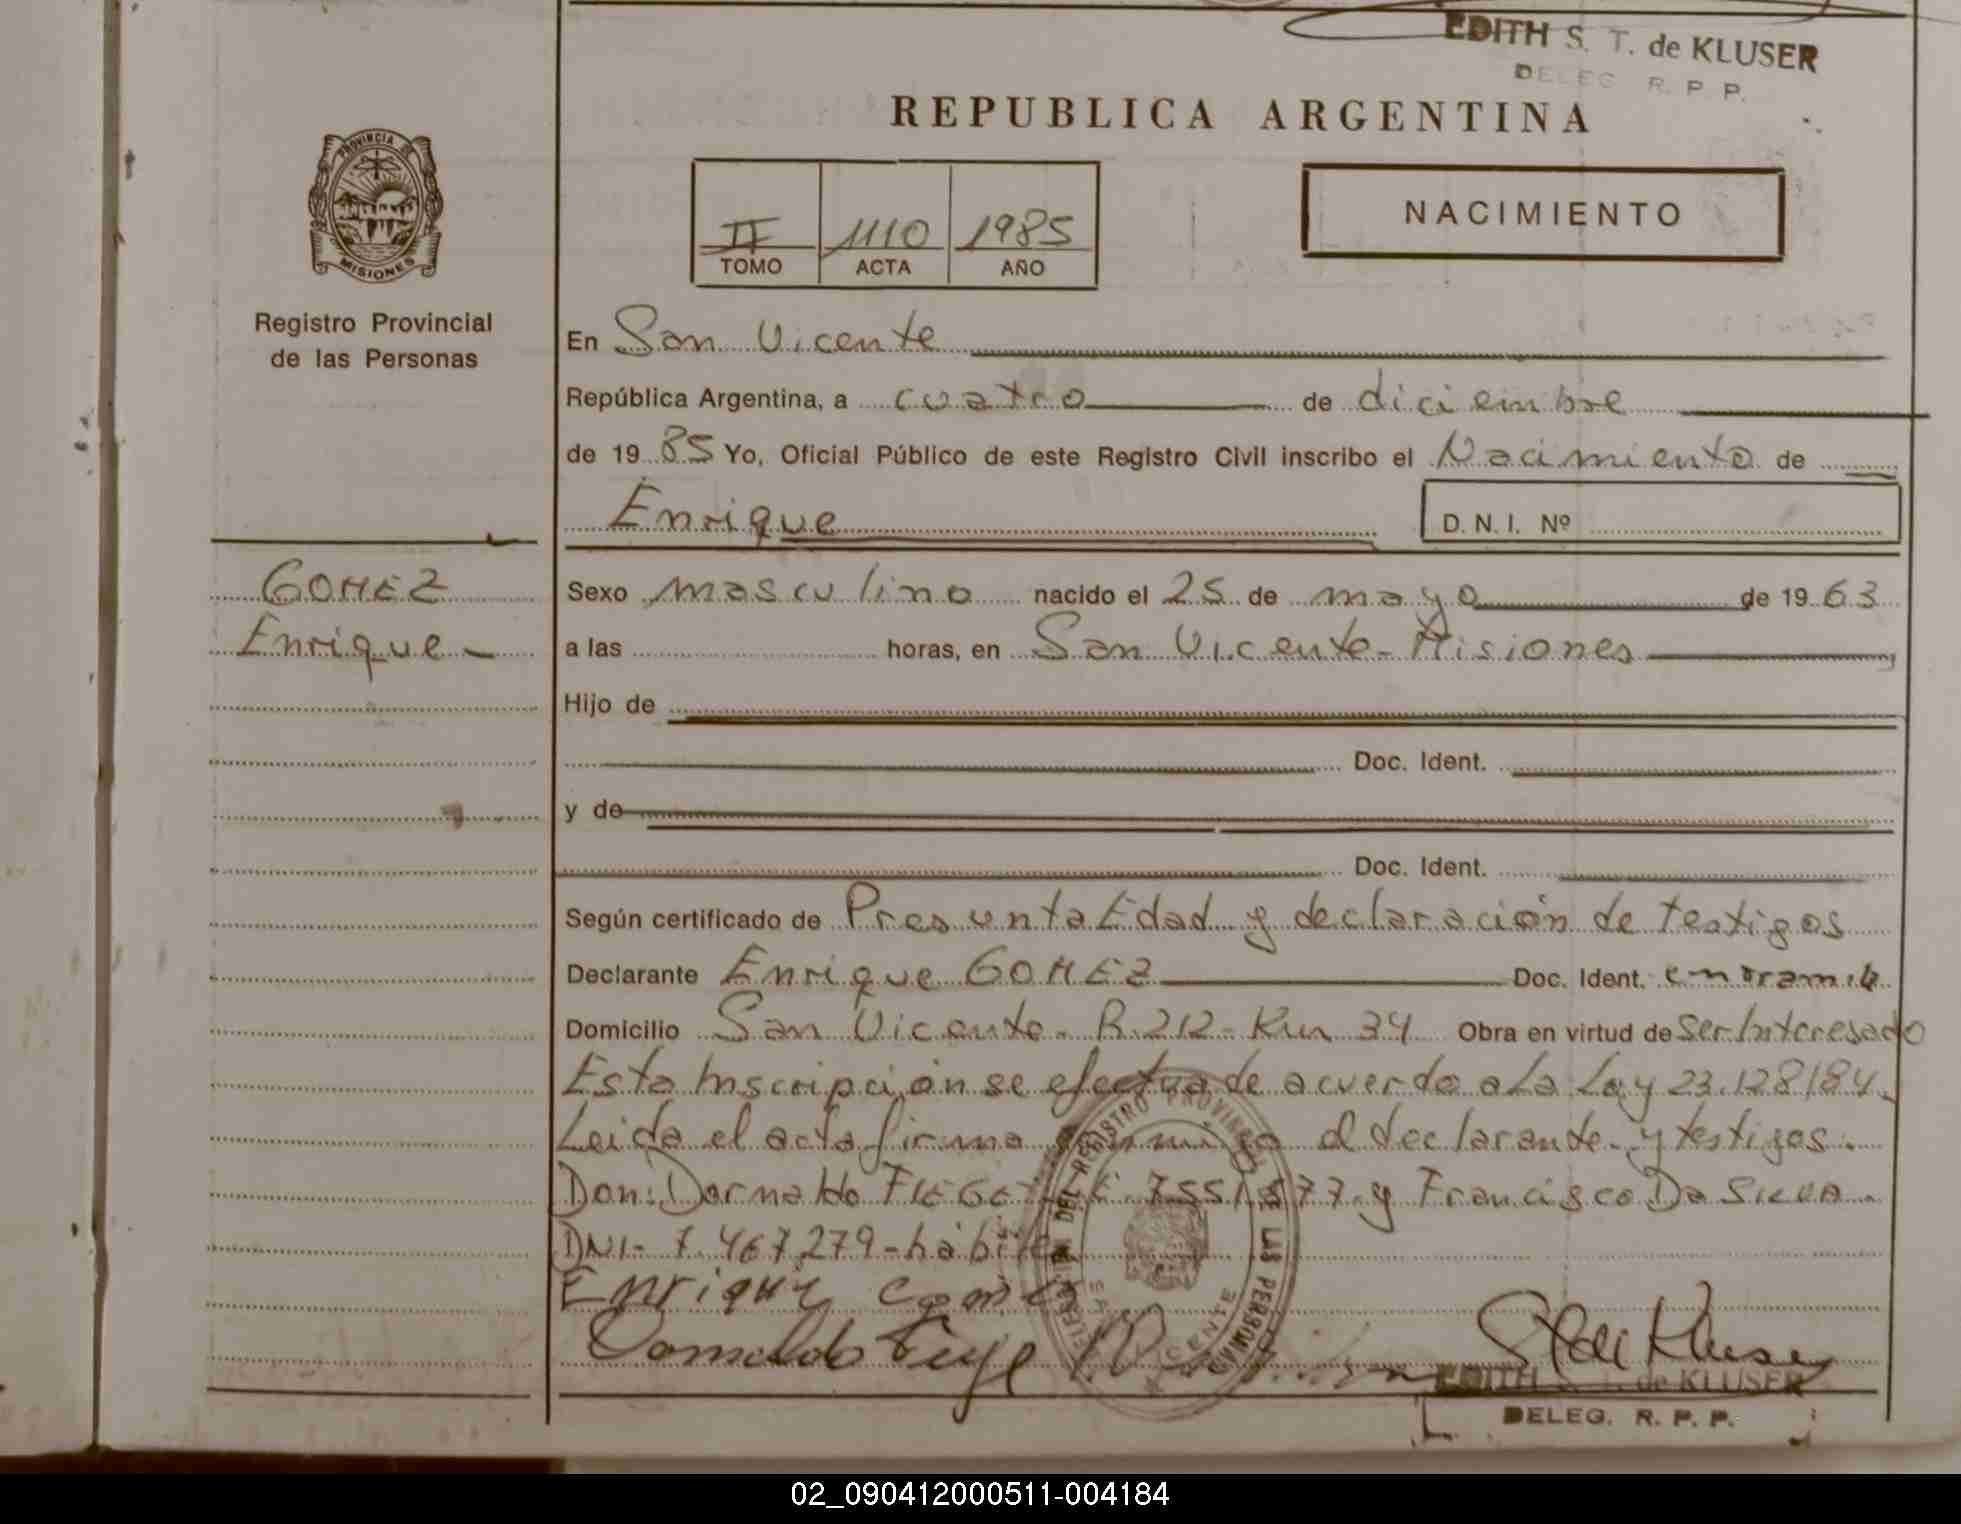 EDITH S. T. de KLUSER
DELEG R. P. P.
REPUBLICA ARGENTINA
PROVINCIA DE
MISIONES
Registro Provincial
de las Personas
II 1110 1985
TOMO ACTA AÑO
NACIMIENTO
En San Vicente
República Argentina, a cuatro de diciembre
de 19 85 Yo, Oficial Público de este Registro Civil inscribo el Nacimiento de
Enrique D. N. I. Nº
GOMEZ
Enrique
Sexo masculino nacido el 25 de mayo de 19 63
a las horas, en San Vicente - Misiones
Hijo de
Doc. Ident.
y de
Doc. Ident.
Según certificado de Presunta Edad y declaración de testigos
Declarante Enrique GOMEZ Doc. Ident. en tramite
Domicilio San Vicente - R. 212 - Km 34 Obra en virtud de Ser Interesado
Esta Inscripción se efectua de acuerdo a La Ley 23.128/84.
Leida el acta firma conmigo el declarante y testigos.
Don: Dornaldo y Francisco Da SILVA
DNI - 7.467.279 - hábiles
Enrique Gomez
DELEGACION DEL REGISTRO PROVINCIAL DE LAS PERSONAS
SAN VICENTE
S T de Kluser
EDITH S. T. de KLUSER
DELEG. R. P. P.
02_090412000511-004184